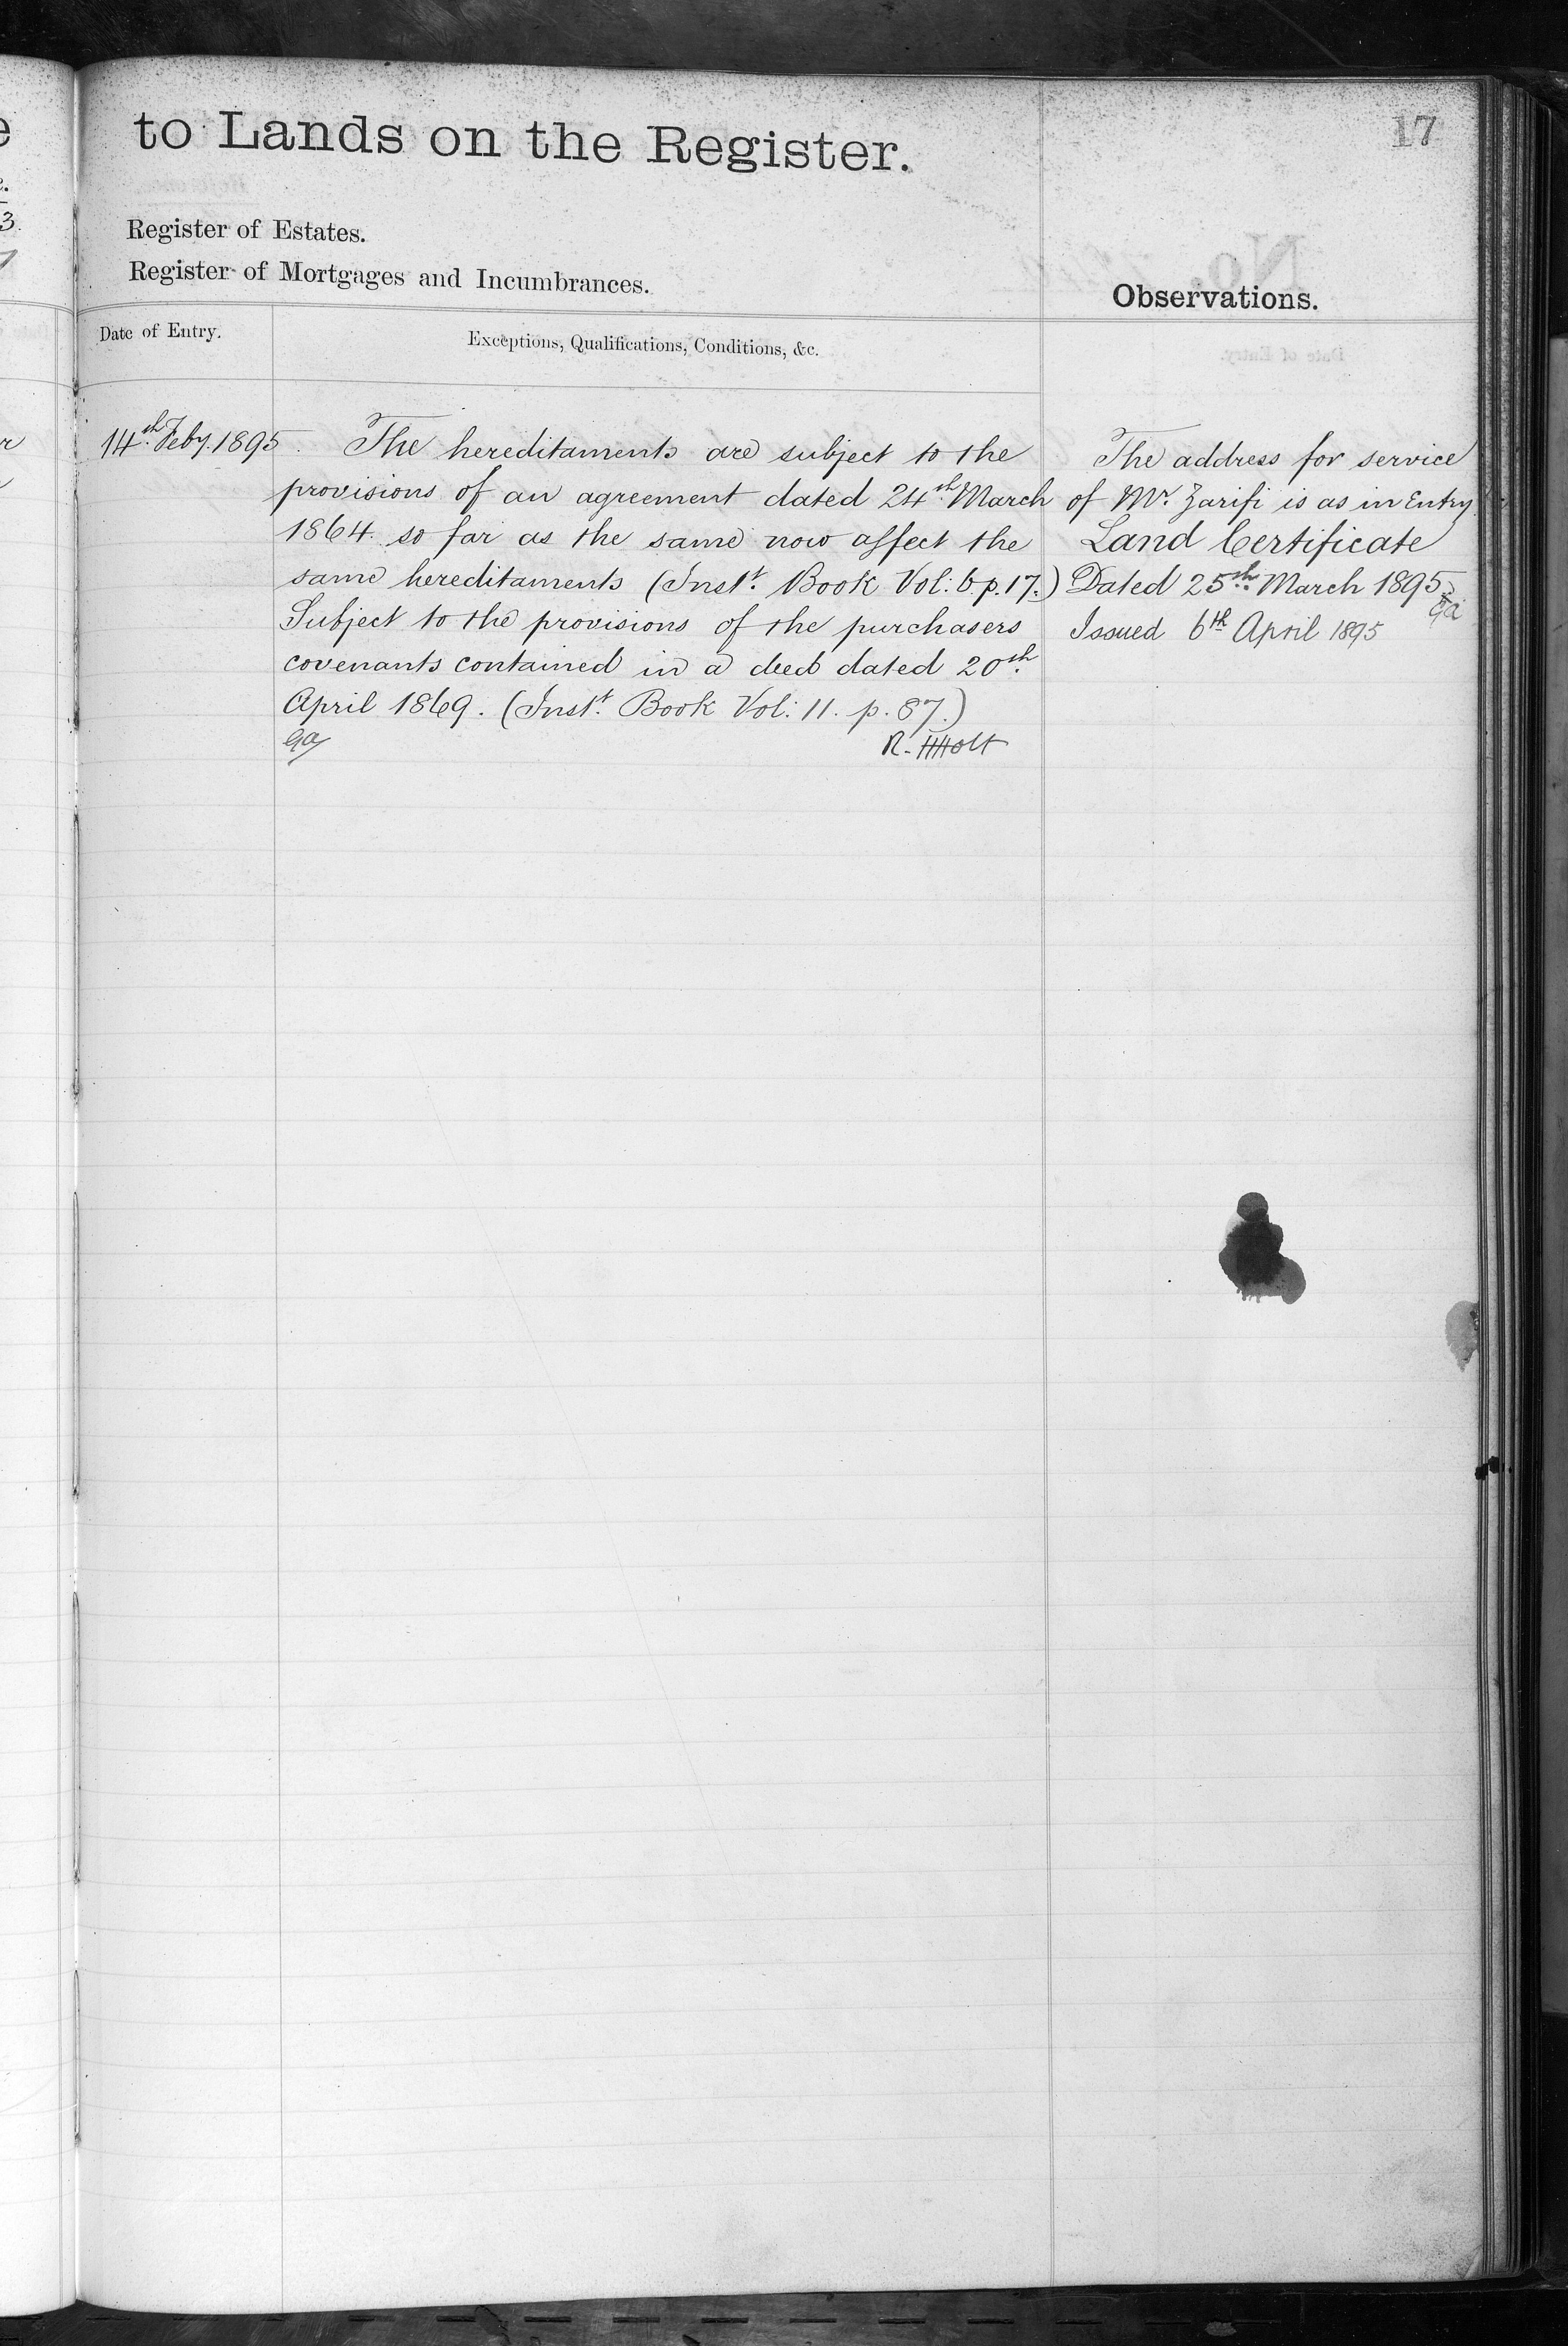 to Lands on the Register.
17
Register of Estates.
Register of Mortgages and Incumbrances.
Observations.
Date of Entry.
Exceptions, Qualifications, Conditions, &c.
14th Feby. 1895.
The hereditaments are subject to the
provisions of an agreement dated 24th March
1864 so far as the same now affect the
same hereditaments (Inst. Book Vol: 6. p. 17.)
Subject to the provisions of the purchasers
covenants contained in a deed dated 20th
April 1869. (Inst. Book Vol: 11. p. 87.)
R. Holt
The address for service
of Mr. Zarifi is as in Entry
Land Certificate
Dated 25th March 1895
Issued 6th April 1895